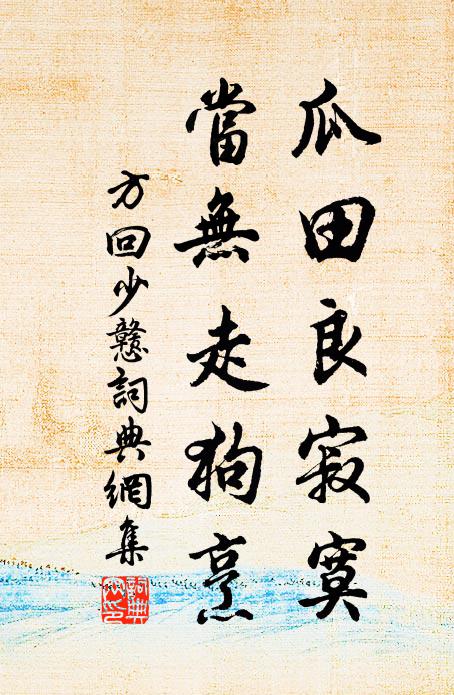 瓜田良寂寞
當無走狗烹
方回少戇詞典網集